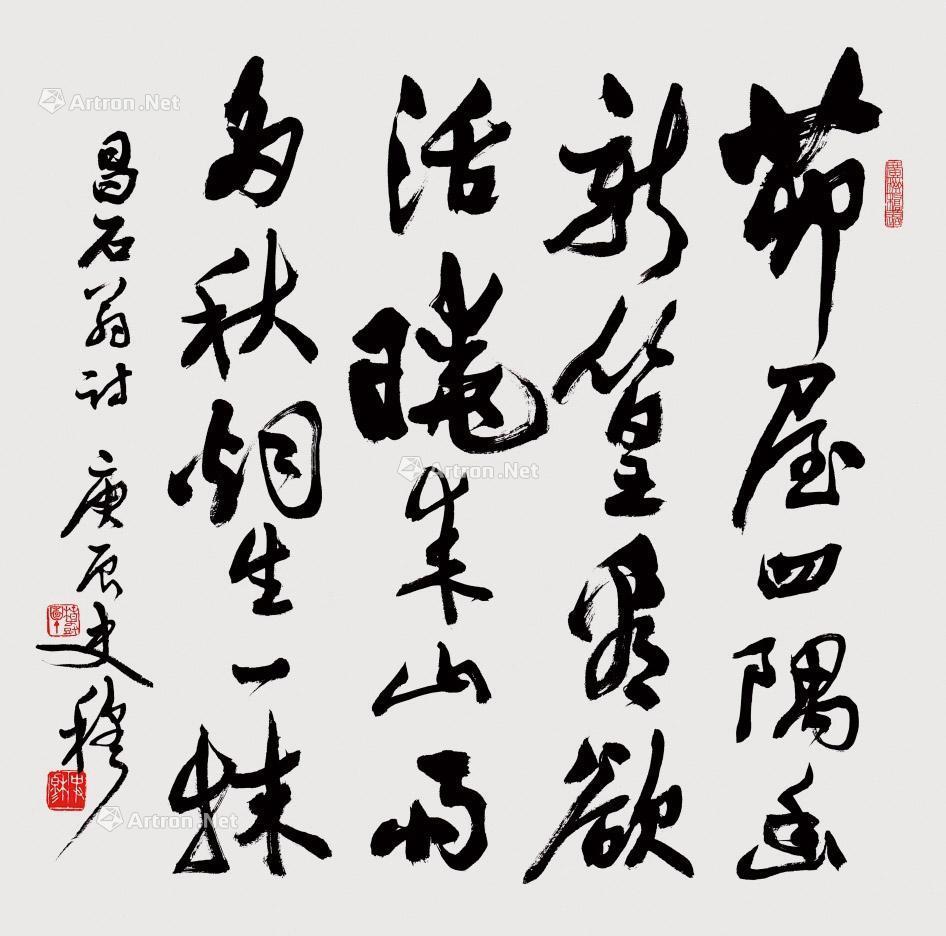 茆屋四隅幽
新篁看欲
活晓来山雨
多秋烟生一抹
昌石翁诗 庚辰 史穆
Artron.Net
Artron.Net
Artron.Net